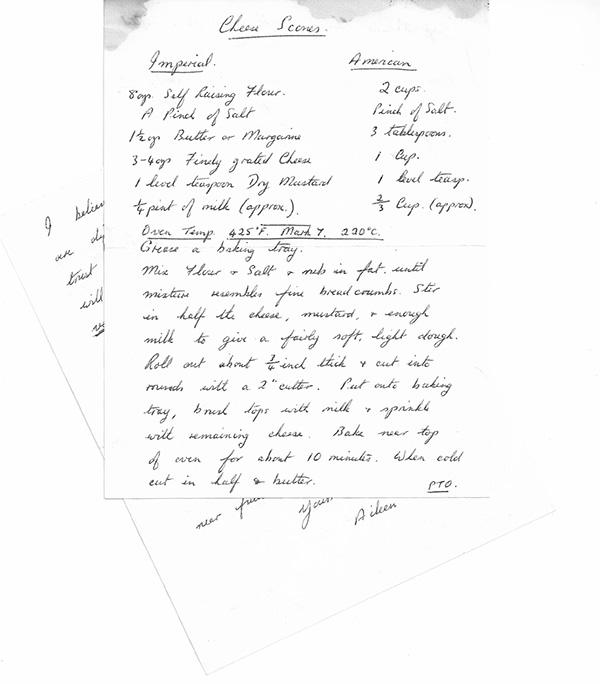 Cheese Scones.
Imperial. American
8ozs Self Raising Flour. 2 cups.
A Pinch of Salt Pinch of Salt.
1½ozs Butter or Margarine 3 tablespoons.
3-4ozs Finely grated Cheese 1 Cup.
1 level teaspoon Dry Mustard 1 level teasp.
¼ pint of milk (approx.). ⅔ Cup. (approx).
Oven Temp. 425°F. Mark 7. 220°C.
Grease a baking tray.
Mix Flour & Salt & rub in fat. until
mixture resembles fine breadcrumbs. Stir
in half the cheese, mustard, & enough
milk to give a fairly soft, light dough.
Roll out about ¾ inch thick & cut into
rounds with a 2" cutter. Put onto baking
tray, brush tops with milk & sprinkle
with remaining cheese. Bake near top
of oven for about 10 minutes. When cold
cut in half & butter. PTO.
I believe
are
trust
will
near
Aileen